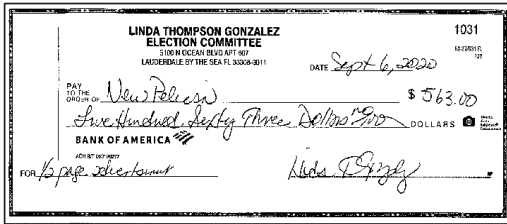 LINDA THOMPSON GONZALEZ
ELECTION COMMITTEE
5100 N OCEAN BLVD APT 607
LAUDERDALE BY THE SEA FL 33308-3011
1031
DATE Sept 6, 2020
PAY
TO THE
ORDER OF New Pelican
$ 563.00
Five Hundred Sixty Three Dollars no/100 DOLLARS
BANK OF AMERICA
FOR 1/2 page advertisement